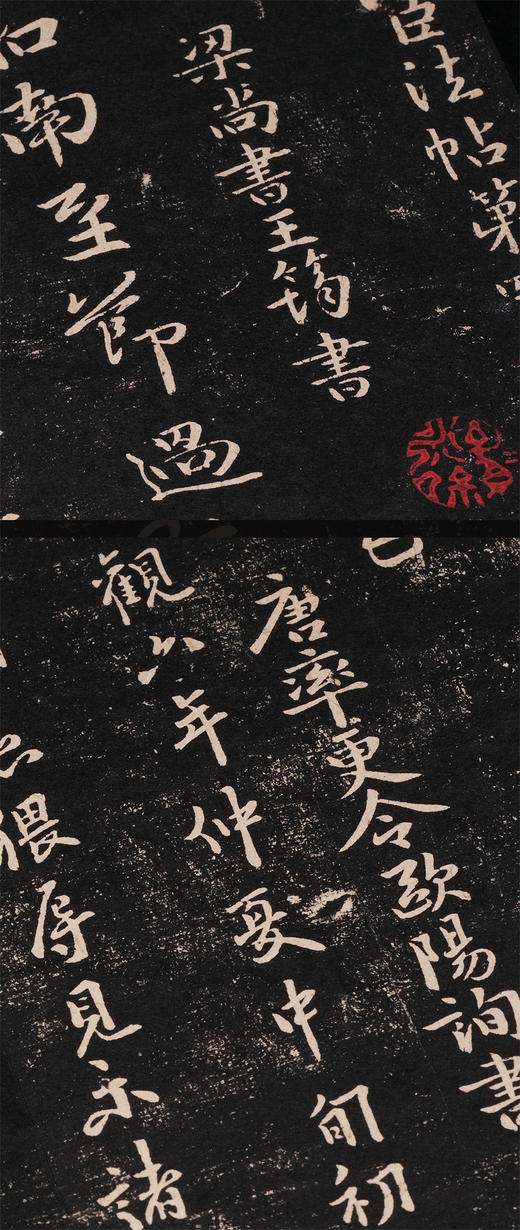 臣法帖第四
梁尚書王筠書
和南至節過
唐率更令歐陽詢書
觀六年仲夏中旬初
猥辱見示諸